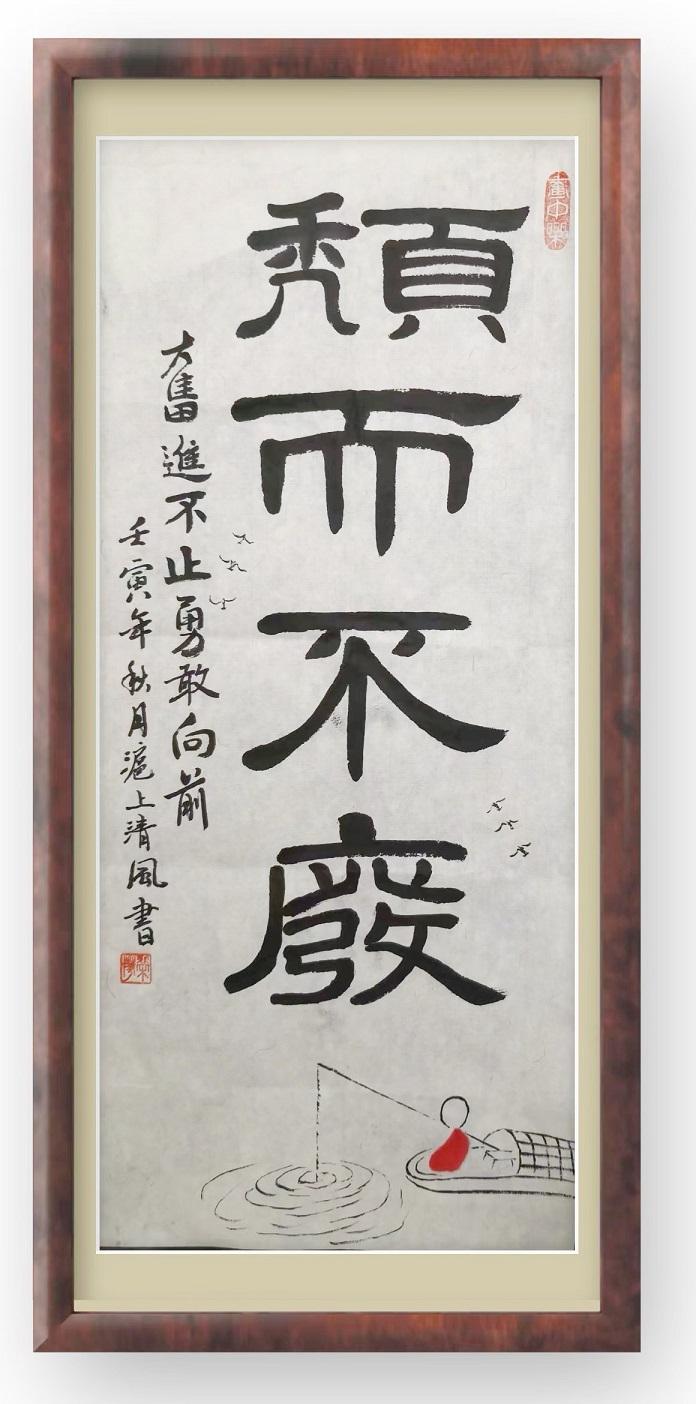 畫中樂
頹而不廢
奮進不止勇敢向前
壬寅年秋月滬上清風書